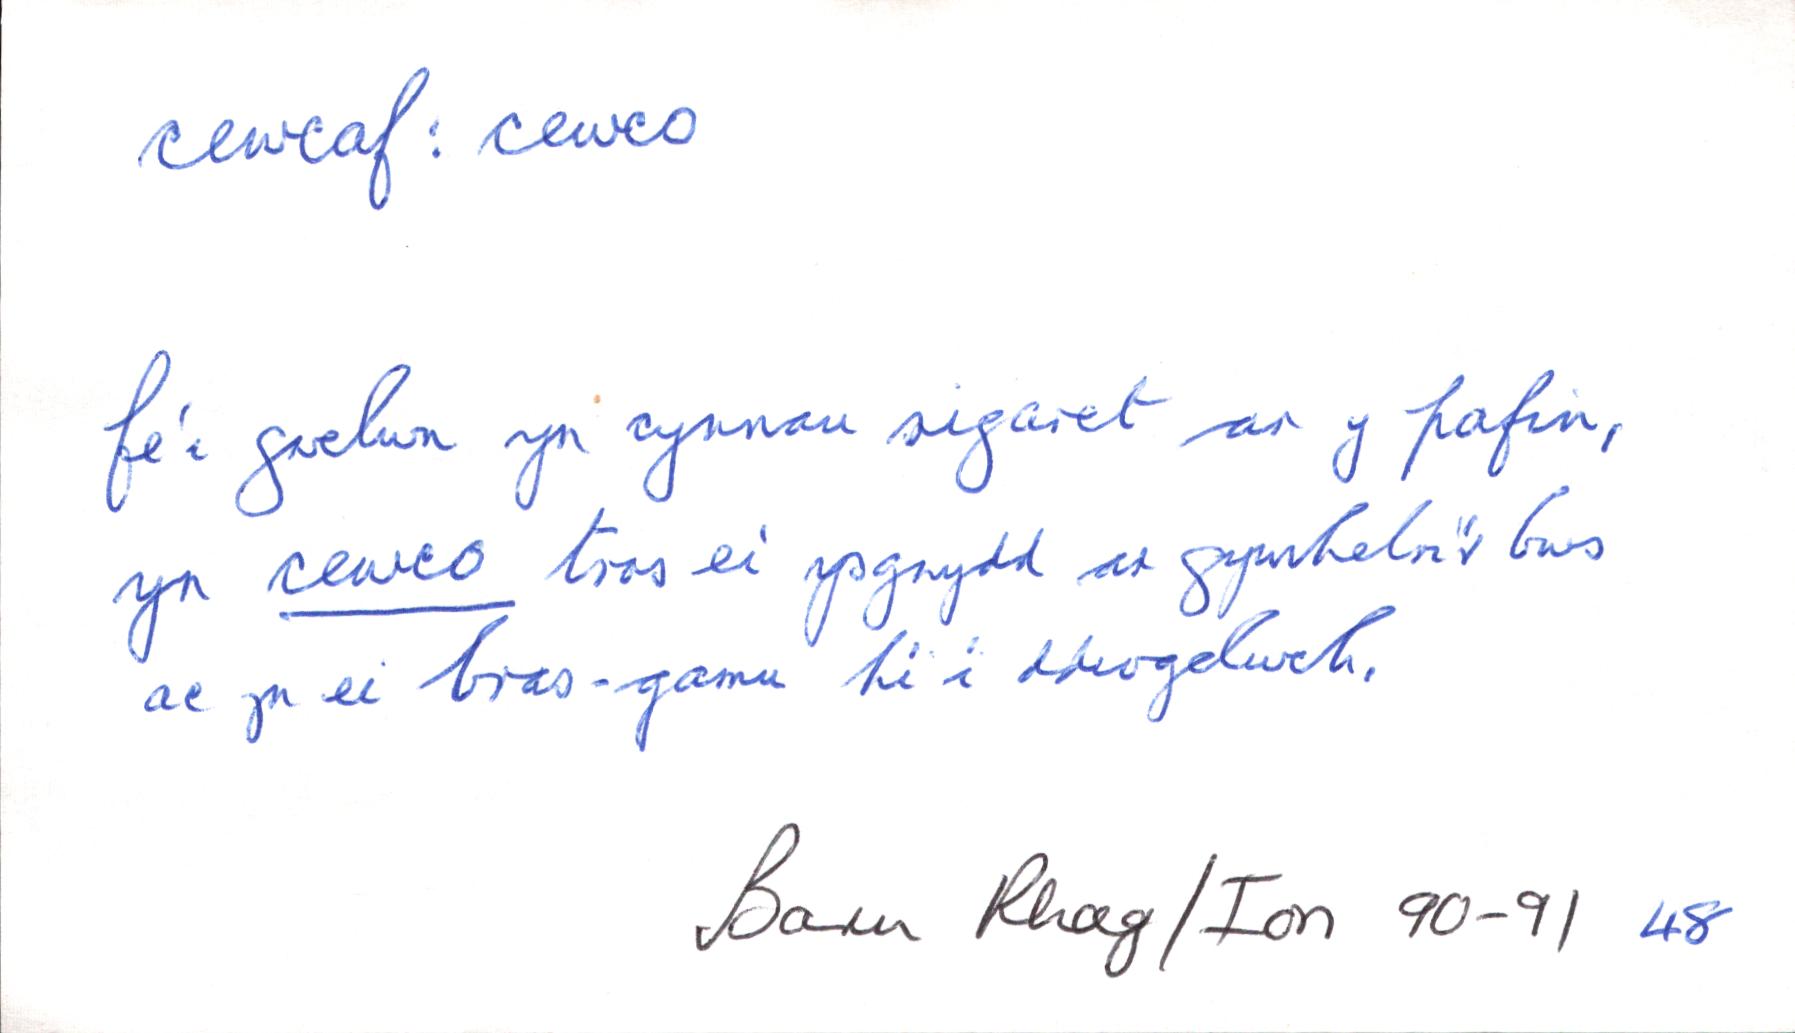 cewcaf: cewco
fe'i gwelwn yn cynnau sigaret ar y pafin,
yn cewco tros ei ysgwydd ar gynhelri'r bws
ac yn ei bras-gamu hi i ddiogelwch.
Barn Rhag/Ion 90-91 48